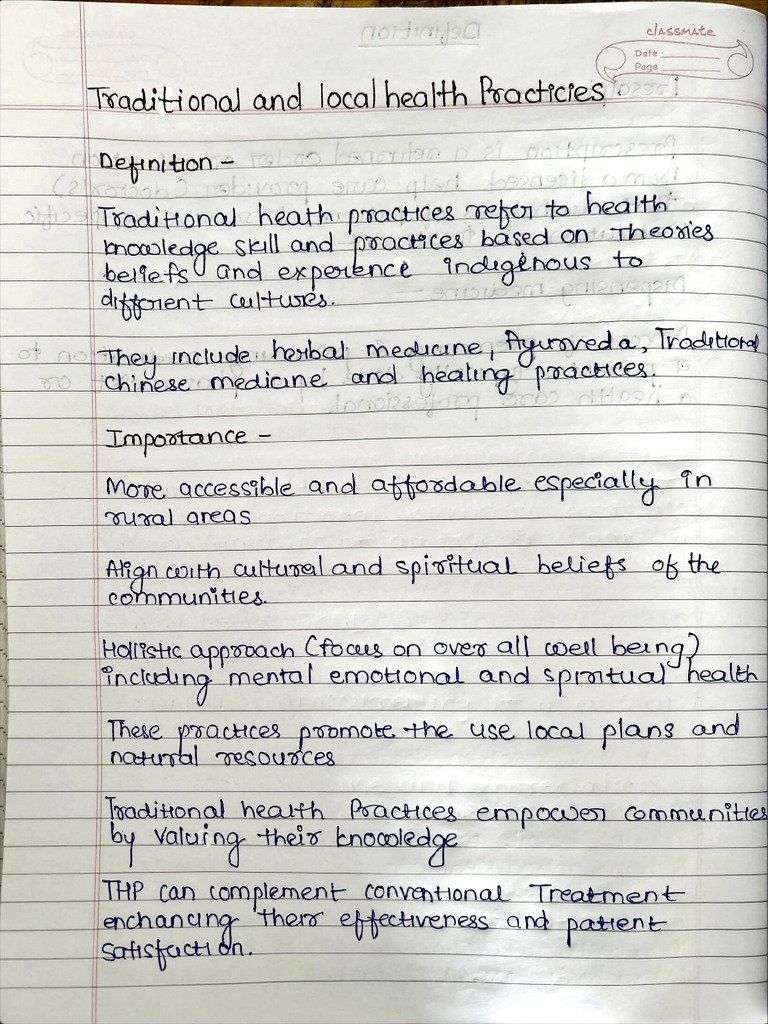 classmate
Date
Page
Traditional and local health Practicies.
Definition -
Traditional heath practices refer to health
knowledge skill and practices based on Theories
beliefs and experience indigenous to
different cultures.
They include herbal medicine, Ayurveda, Traditional
Chinese medicine and healing practices.
Importance -
More accessible and affordable especially in
rural areas
Align with cultural and spiritual beliefs of the
communities.
Hollistic approach (focus on over all well being)
including mental emotional and spiritual health
These practices promote the use local plans and
natural resources
Traditional health Practices empower communities
by valuing their knowledge
THP can complement conventional Treatment
enchancing their effectiveness and patient
satisfaction.